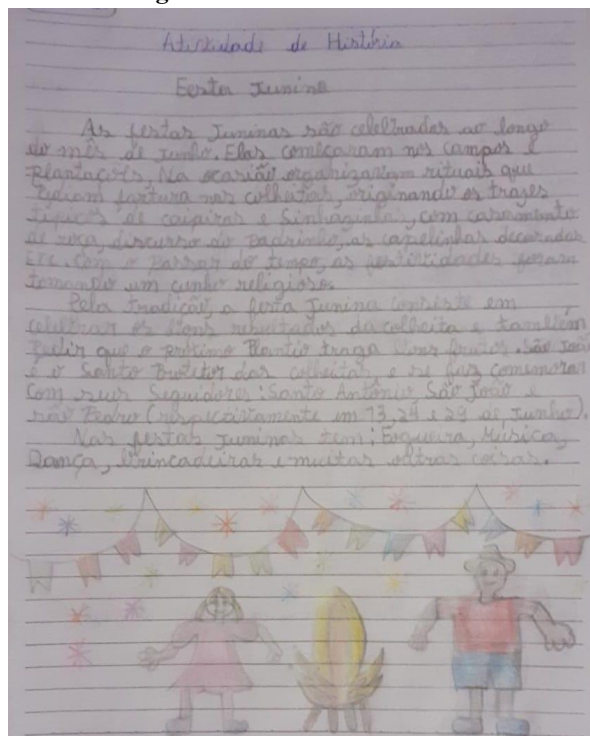 Atividade de História
Festa Junina
As festas Juninas são celebradas ao longo
do mês de junho. Elas começaram nos campos e
Plantações, Na ocasião organizavam rituais que
pediam fartura nas colheitas, originando os trajes
típicos de caipiras e Sinhazinhas, com casamento
de roça, discurso do Padrinho, as capelinhas decoradas
Etc. Com o Passar do tempo, as festividades foram
tomando um cunho religioso.
Pela tradição, a festa Junina consiste em
celebrar os bons resultados da colheita e também
Pedir que o próximo Plantio traga bons frutos. São João
é o Santo Protetor das colheitas e se faz comemorar
Com seus Seguidores: Santo Antônio São João e
são Pedro (respectivamente em 13, 24 e 29 de Junho).
Nas festas Juninas tem: Fogueira, Música,
Dança, brincadeiras e muitas outras coisas.